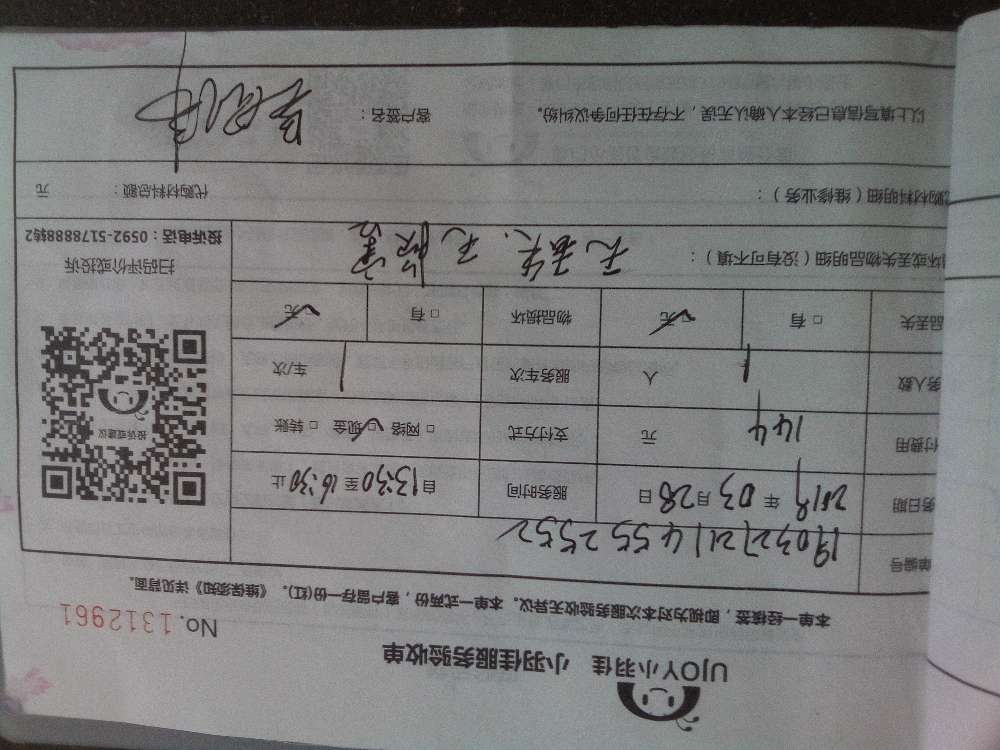 UJOY小羽佳 小羽佳服务验收单
No. 1312961
本单一经核签，即视为对本次服务验收无异议。本单一式两份，客户留存一份(红)。《维保须知》详见背面。
单编号 190327214552552
务日期 2019 年 03 月 28 日 服务时间 自 13:30 至 16:30 止
付费用 144 元 支付方式 □ 网络 ☑ 现金 □ 转账
务人数 1 人 服务车次 1 车/次
品丢失 □ 有 ☑ 无 物品损坏 □ 有 ☑ 无
投诉或建议
扫码评价或投诉
投诉电话：0592-5178888转2
坏或丢失物品明细（没有可不填）： 无丢失.无损坏
购材料明细（维修业务）： 代购材料总额： 元
以上填写信息已经本人确认无误，不存在任何争议纠纷。 客户签名：